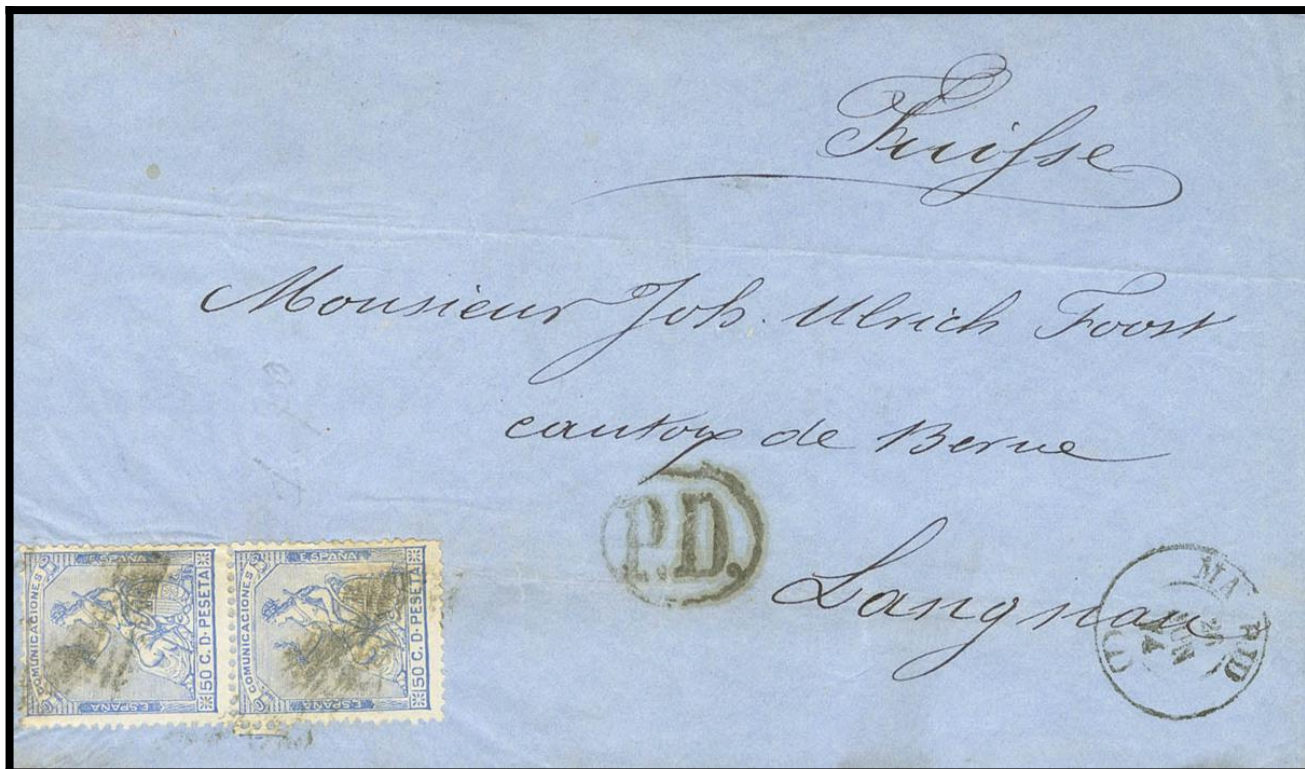 Suisse
Monsieur Joh. Ulrich Joost
canton de Berne
P.D.
Langnau
MADRID
COMUNICACIONES
ESPAÑA
50 C. D PESETA
ESPAÑA
COMUNICACIONES
ESPAÑA
50 C. D PESETA
ESPAÑA